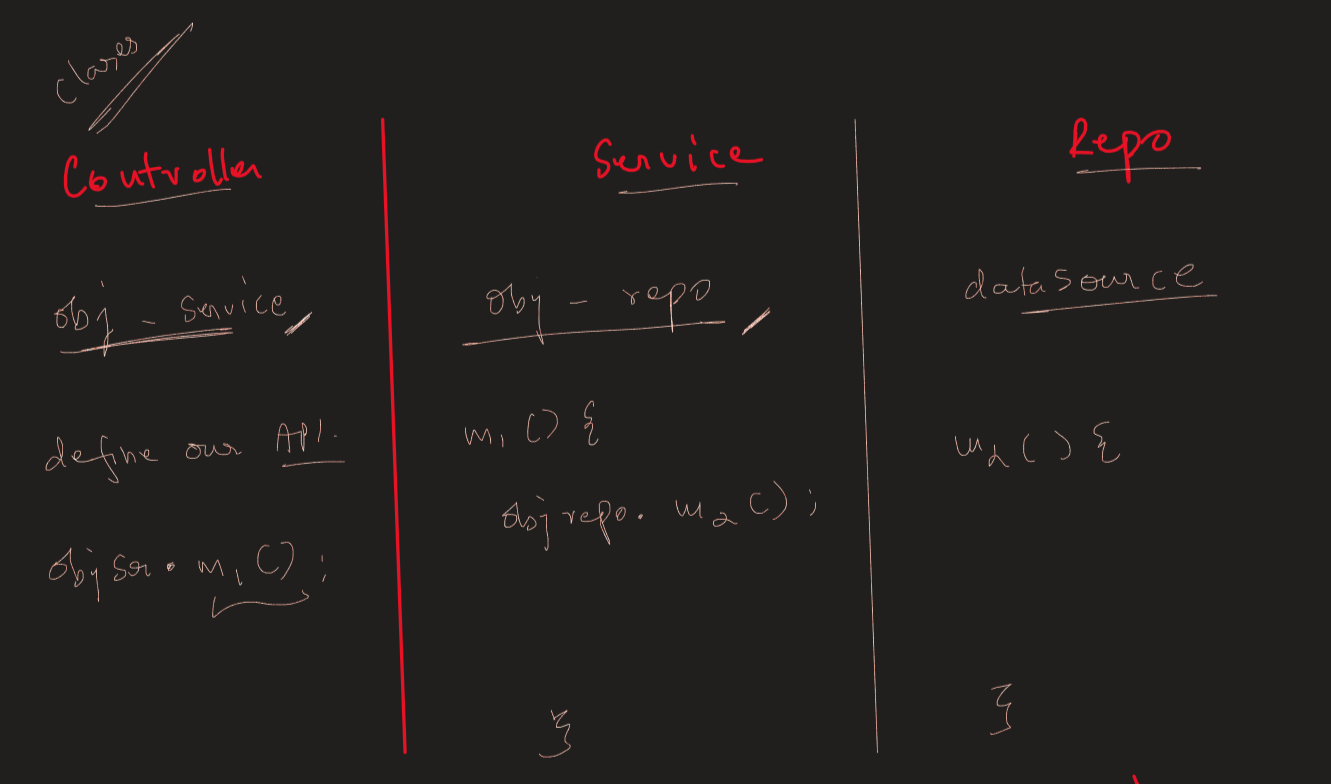 classes
Controller
obj - service
define our API.
obj ser. m1();
Service
obj - repo
m1() {
obj repo. m2();
}
Repo
datasource
m2() {
}